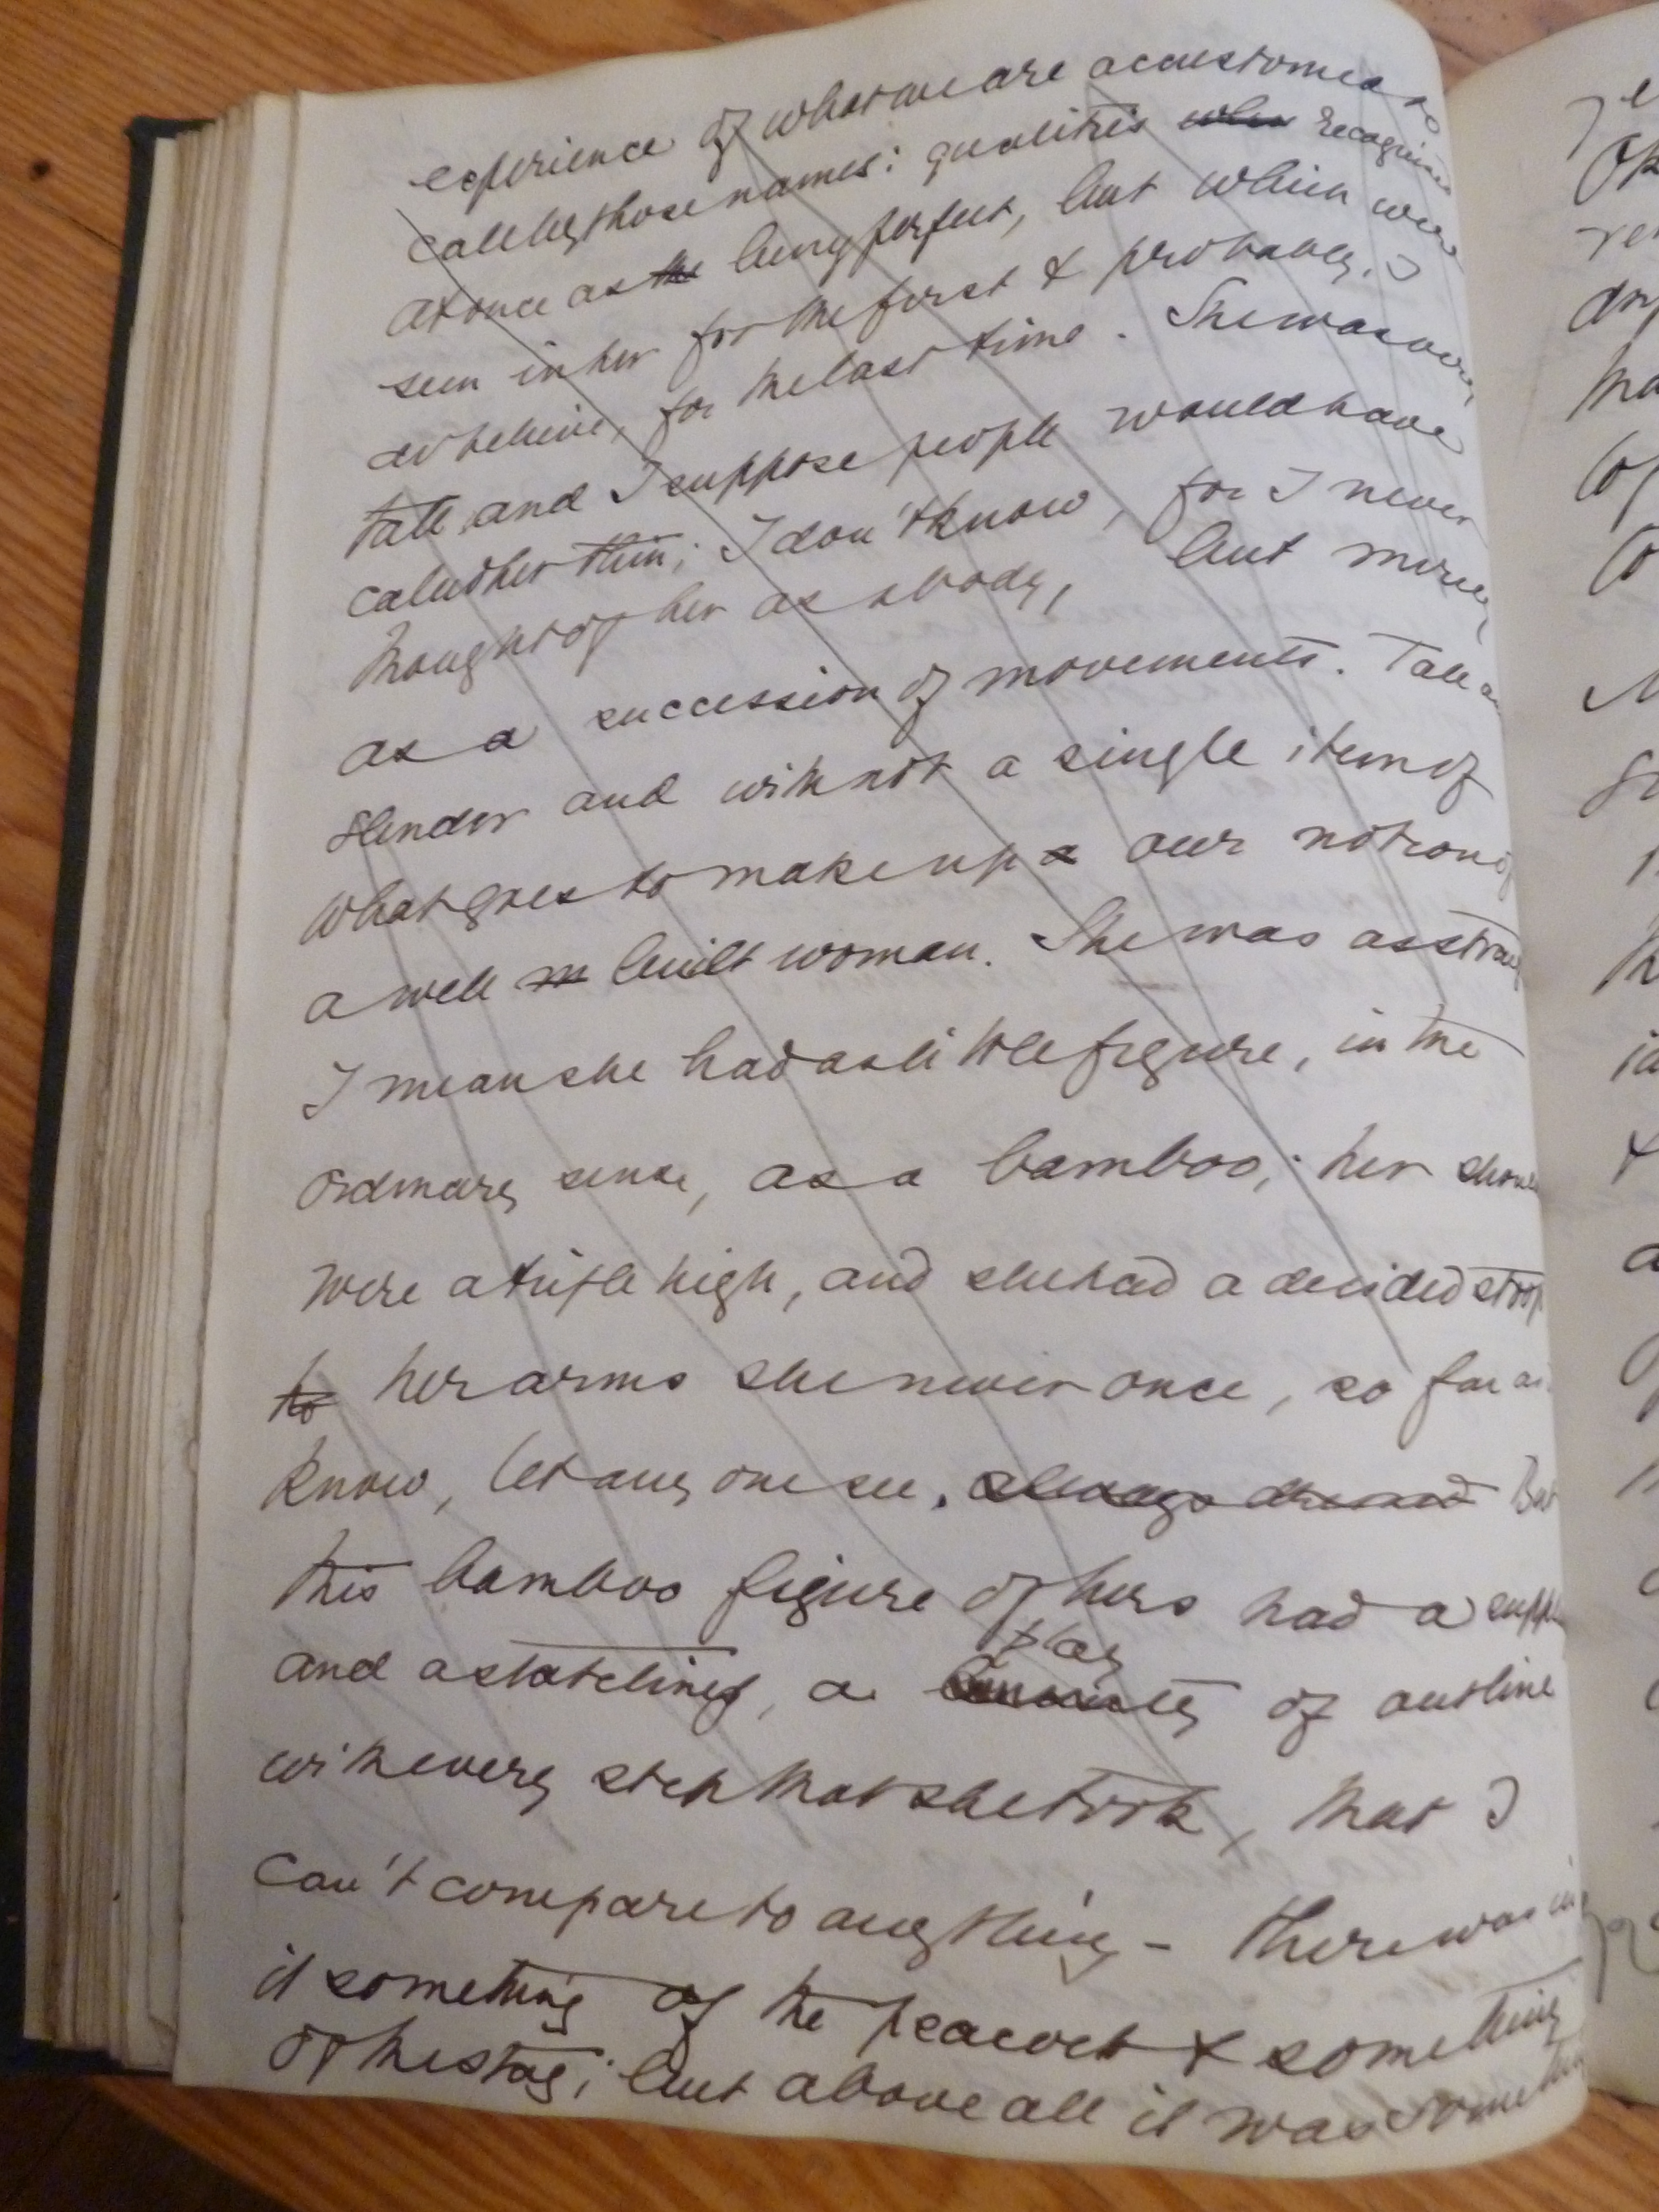 experience of what we are accustomed to
call by those names: qualities when recognised
at once as the being perfect, but which were
seen in her for the first & probably, I
do believe, for the last time. She was very
tall and I suppose people would have
called her thin; I don't know, for I never
thought of her as a body, but merely
as a succession of movements. Tall a
slender and with not a single item of
what goes to make up a our notion of
a well m built woman. She was as straig
I mean she had as little figure, in the
ordinary sense, as a bamboo; her shoul
were a trifle high, and she had a decided stoop
to her arms she never once, so far as
know, let any one see. always dressed But
this bamboo figure of hers had a suppl
play
and a stateliness, a of outline
with every step that she took, that I
can't compare to anything – there was in
it something of the peacock & something
of the stag; but above all it was something